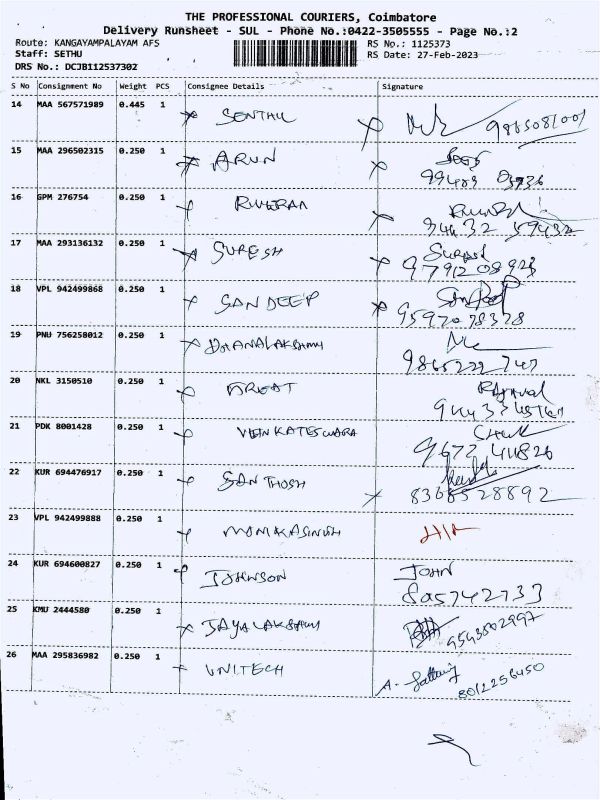 THE PROFESSIONAL COURIERS, Coimbatore
Delivery Runsheet - SUL - Phone No.:0422-3505555 - Page No.:2
Route: KANGAYAMPALAYAM AFS RS No.: 1125373
Staff: SETHU RS Date: 27-Feb-2023
DRS No.: DCJB112537302
S No Consignment No Weight PCS Consignee Details Signature
14 MAA 567571989 0.445 1 SENTHIL
15 MAA 296502315 0.250 1 ARUN
16 GPM 276754 0.250 1
17 MAA 293136132 0.250 1 SURESH Suresh
9791208923
18 VPL 942499868 0.250 1 SANDEEP Sandeep
9597078378
19 PNU 756258012 0.250 1 DHANALAKSHMI
20 NKL 3150510 0.250 1
21 PDK 8001428 0.250 1 VENKATESWARA
22 KUR 694476917 0.250 1 SANTHOSH
8368528892
23 VPL 942499888 0.250 1 MONIKASINGH
24 KUR 694600827 0.250 1 JOHNSON JOHN
805742733
25 KMU 2444580 0.250 1 JAYALAKSHMI
9543502997
26 MAA 295836982 0.250 1 UNITECH
8012256450